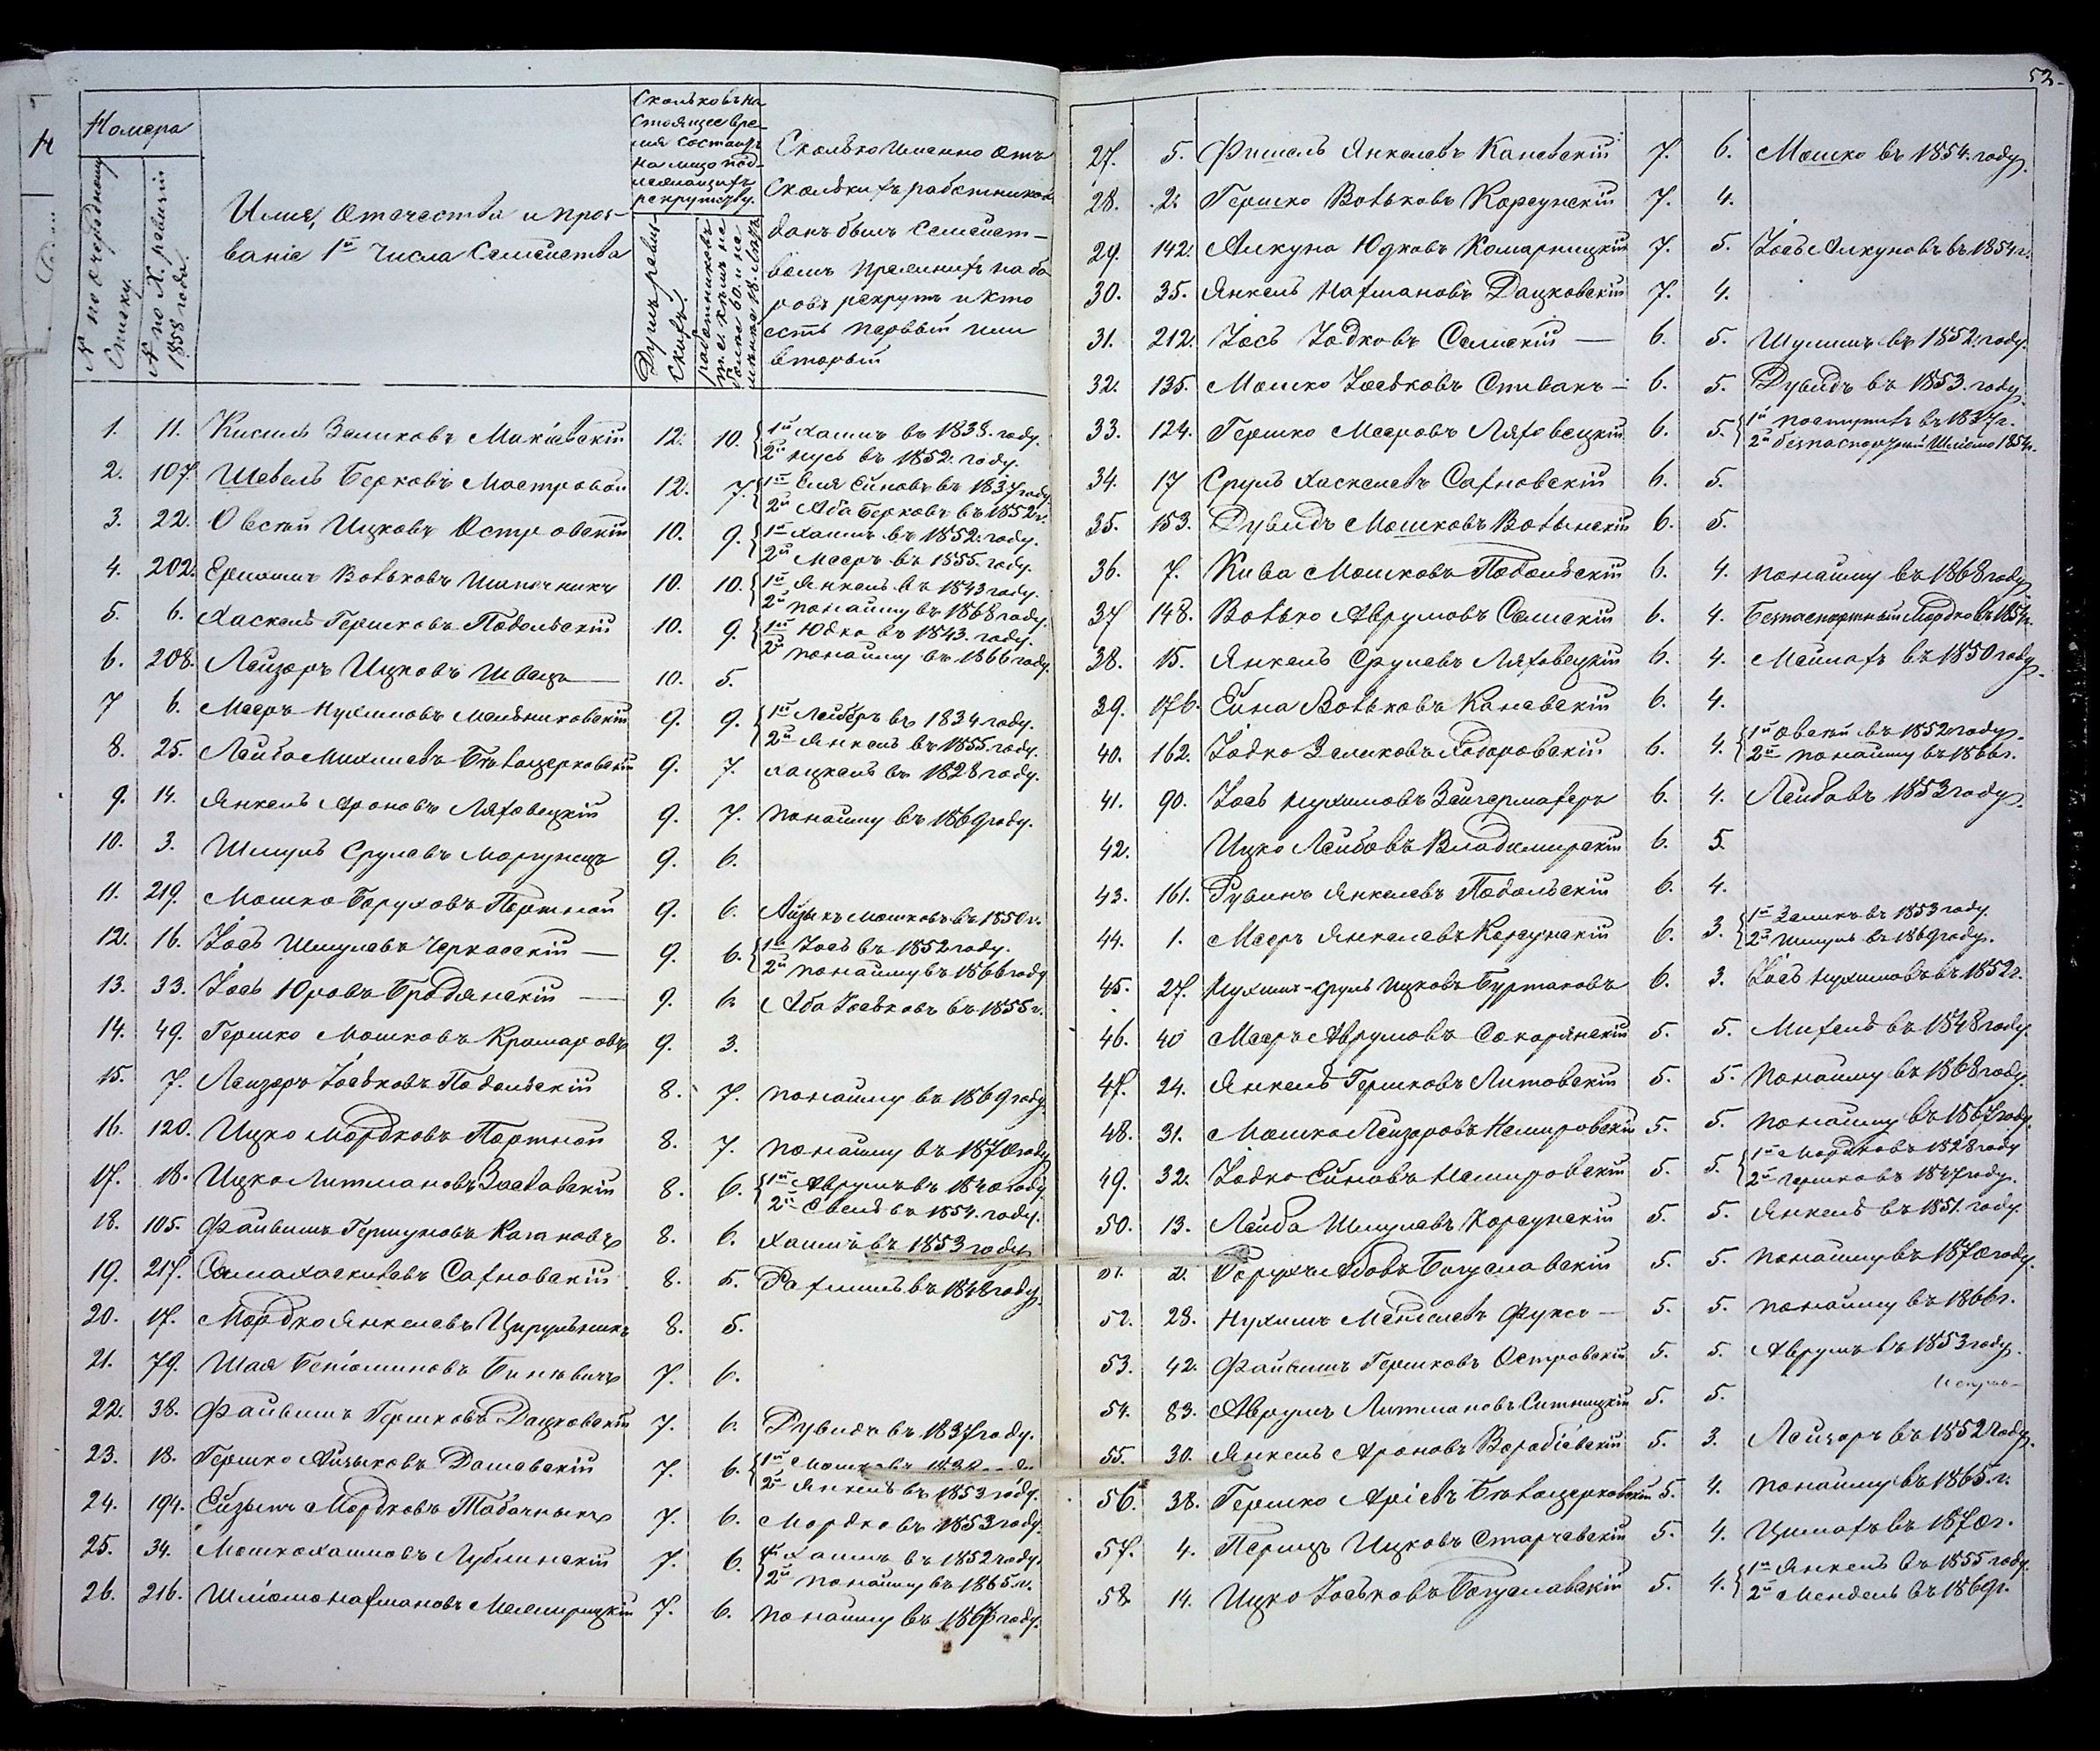 52.
Номера
№ по очередному списку.
№ по X. ревизіи 1858 года.
Имя, Отечество и проз-
ваніе 1й числа Семейства
Сколько въ на
стоящее вре-
мя состоитъ
на лицо под-
лежащихъ
рекрутству.
Душъ ревиз-
скихъ.
работниковъ
т.е. не
более 60 и не
менее 18. лѣтъ
Сколько именно отъ
сколькихъ работников
данъ былъ Семейст-
вомъ прежнихъ набо
ровъ рекрутъ и кто
есть первый или
второй
1. 11. Кисиль Зеликовъ Макіевскій 12. 10. 1й Хаимъ въ 1838. году.
2й Нусь въ 1852. году.
2. 107. Шевель Берковъ Мостровой 12. 7. 1й Еля Ейновъ въ 1837 году
2й Аба Берковъ въ 1852 г.
3. 22. Овсей Ицковъ Островскій 10. 9. 1й Хаимъ въ 1852. году.
2й Мееръ въ 1855. году.
4. 202. Ерихимъ Волковъ Шапочникъ 10. 10. 1й Янкель въ 1843 году.
2й по найму въ 1868 году.
5. 6. Хаскель Гершковъ Подольскій 10. 9. 1й Юдко въ 1843. году.
2й по найму въ 1866 году.
6. 208. Лейзоръ Ицковъ Швецъ — 10. 5.
7 6. Мееръ Нухимовъ Мельниковскій 9. 9. 1й Лейберъ въ 1834 году.
2й Янкель въ 1855. году.
8. 25. Лейба Михелевъ Бѣлоцерковскій 9. 7. Хацкель въ 1828 году.
9. 14. Янкель Ароновъ Ляховецкій 9. 7. по найму въ 1869 году.
10. 3. Шмуль Срулевъ Моргунецъ 9. 6.
11. 219. Мошко Боруховъ Портной 9. 6. Айзыкъ Мошковъ въ 1850 г.
12. 16. Іось Шмулевъ Черкасскій — 9. 6. 1й Іось въ 1852 году.
2й по найму въ 1866 году
13. 33. Іось Юровъ Бродянскій — 9. 6. Аба Іоськовъ въ 1855 г.
14. 49. Гершко Мошковъ Крамаровъ 9. 3.
15. 7. Лейзоръ Іоськовъ Подольскій 8. 7. по найму въ 1869 году
16. 120. Ицко Мордковъ Портной 8. 7. по найму въ 1870 году
17. 18. Ицко Литмановъ Заславскій 8. 6. 1й Аврумъ въ 1840 году
2й въ 1854. году.
18. 105. Файвишъ Гершуновъ Кагановъ 8. 6. Хаимъ въ 1853 году
19. 217. Хаскилевъ Сахновскій 8. 5. Рахмиль въ 1848 году.
20. 17. Мордко Янкелевъ Цирульникъ 8. 5.
21. 79. Шая Беніоминовъ Биневичъ 7. 6.
22. 38. Файвишъ Гершковъ Дацковскій 7. 6. Дувидъ въ 1837 году.
23. 18. Гершко Айзыковъ Дашевскій 7. 6. 1й
2й Янкель въ 1853 году.
24. 194. Ейзыкъ Мордковъ Табачникъ 7. 6. Мордко въ 1853 году.
25. 34. Мошко Хаимовъ Лублинскій 7. 6. 1й Хаимъ въ 1852 году.
2й по найму въ 1865. г.
26. 216. Шліомо Нахмановъ Межирицкій 7. 6. по найму въ 1867 году.
27. 5. Фишель Янкелевъ Каневскій 7. 6. Мошко въ 1854. году.
28. 2. Гершко Волковъ Корсунскій 7. 4.
29. 142. Алкуна Юдковъ Комарницкій 7. 5. Іось Алкуновъ въ 1854 г.
30. 35. Янкель Нахмановъ Дацковскій 7. 4.
31. 212. Іось Іодковъ Сашскій — 6. 5. Шулимъ въ 1852. году.
32. 135. Мошко Іоськовъ Спивакъ — 6. 5. Дувидъ въ 1853. году.
33. 124. Гершко Мееровъ Ляховецкій 6. 5. 1й въ 1837 г.
2й безпаспортный Шліомо 1854 г.
34. 17 Сруль Хаскелевъ Сахновскій 6. 5.
35. 153. Дувидъ Мошковъ Волынскій 6. 5.
36. 7. Кива Мошковъ Подольскій 6. 4. по найму въ 1868 году
37 148. Волько Аврумовъ Сашскій 6. 4. Безпаспортный Мордко въ 1854 г.
38. 15. Янкель Срулевъ Ляховецкій 6. 4. Мейлахъ въ 1850 году.
39. 176. Ейна Волковъ Каневскій 6. 4.
40. 162. Іодко Зеликовъ 6. 4. 1й Овсей въ 1852 году.
2й по найму въ 1866 г.
41. 90. Іось Нухимовъ Зейгермахеръ 6. 4. Лейба въ 1853 году.
42. Ицко Лейбовъ Владимирскій 6. 5.
43. 161. Рувинъ Янкелевъ Подольскій 6. 4.
44. 1. Мееръ Янкелевъ Корсунскій 6. 3. 1й Зелигъ въ 1853 году.
2й Шмуль въ 1869 году.
45. 27. Нухимъ-Сруль Ицковъ Буртаковъ 6. 3. Іось Нухимовъ въ 1852 г.
46. 40 Мееръ Аврумовъ Сокорянскій 5. 5. Михель въ 1848 году.
47. 24. Янкель Гершковъ Литовскій 5. 5. по найму въ 1868 году.
48. 31. Мошко Лейзоровъ Немировскій 5. 5. по найму въ 1867 году.
49. 32. Іодко Симовъ Немировскій 5. 5. 1й Мордко въ 1828 году
2й Гершко въ 1847 году.
50. 13. Лейба Шмулевъ Корсунскій 5. 5. Янкель въ 1851. году.
51. 2. Борухъ Абовъ Богуславскій 5. 5. по найму въ 1870 году.
52. 28. Нухимъ Менделевъ Фуксъ — 5. 5. по найму въ 1866 г.
53. 42. Файвишъ Гершковъ Островскій 5. 5. Аврумъ въ 1853 году.
54. 83. Аврумъ Литмановъ Ситницкій 5. 5.
55. 30. Янкель Ароновъ Воробіевскій 5. 3. Лейзоръ въ 1852 году.
56. 38. Гершко Аріевъ Бѣлоцерковскій 5. 4. по найму въ 1865. г.
57. 4. Перицъ Ицковъ Старчевскій 5. 4. Цимахъ въ 1870 г.
58. 14. Ицко Іоськовъ Богуславскій 5. 4. 1й Янкель въ 1855 году.
2й Мендель въ 1869 г.